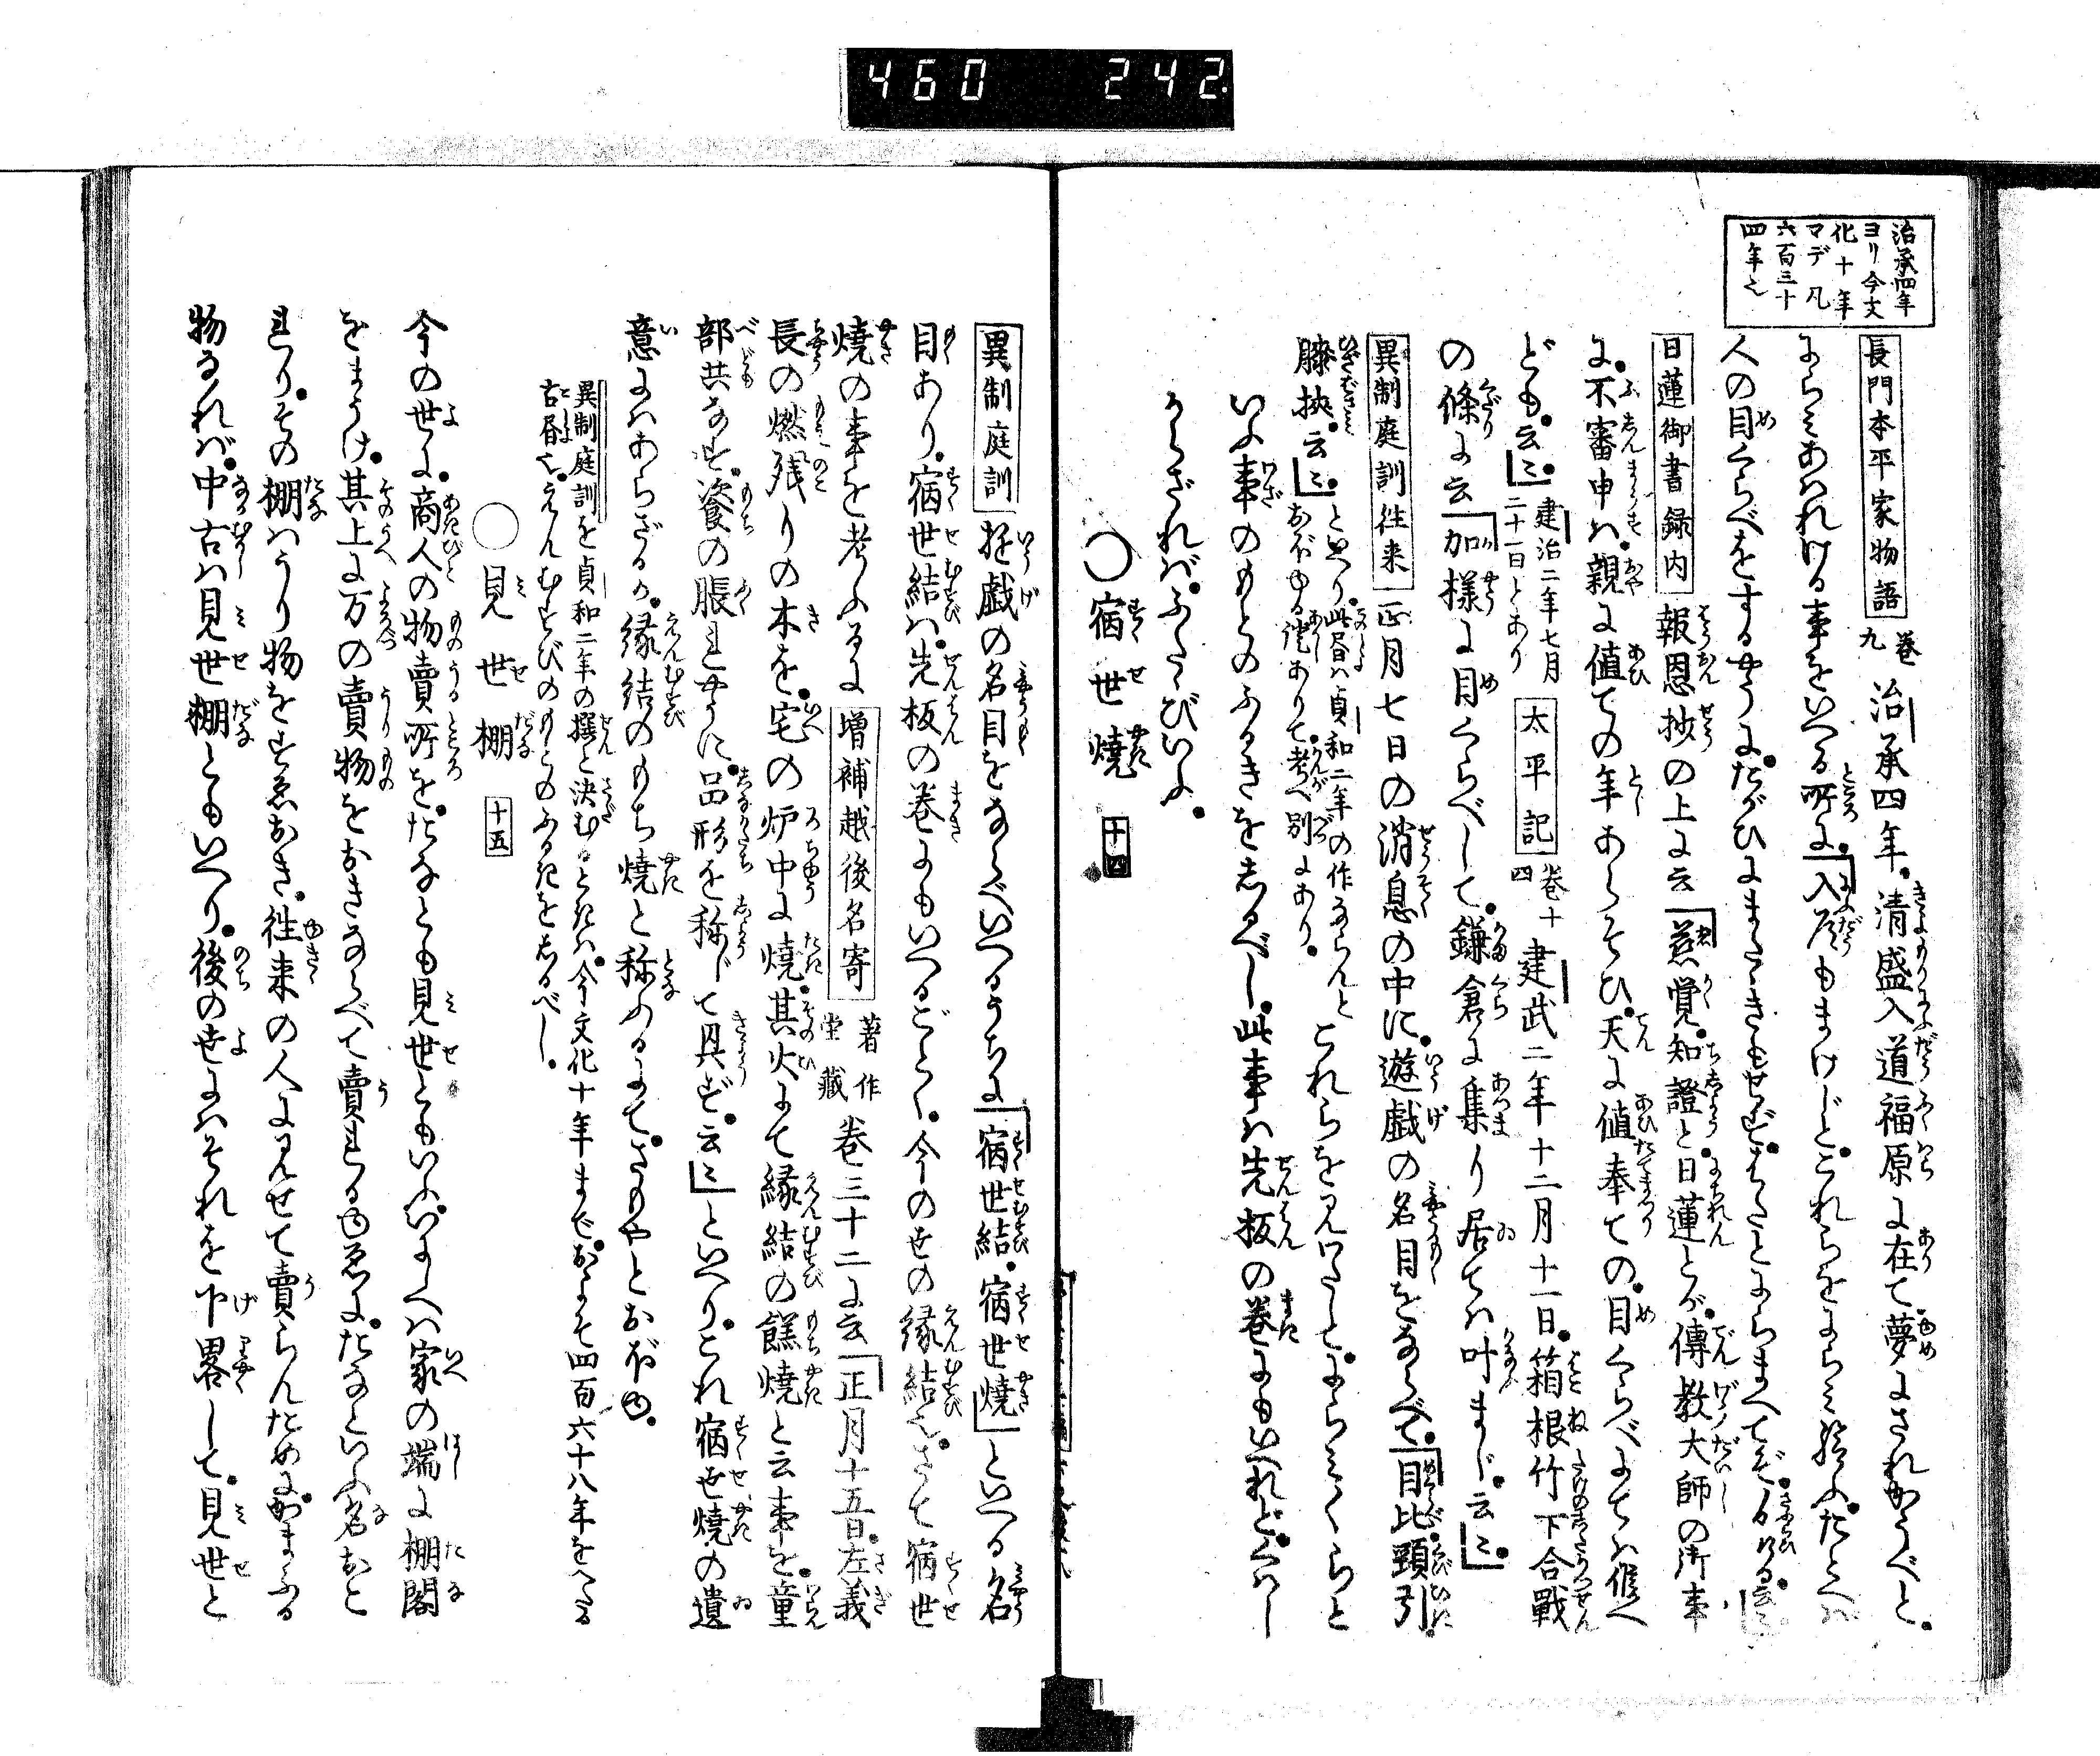 460 242
治承四年
ヨリ今文
化十年
マデ凡
六百三十
四年也
長門本平家物語 巻九 治承四年。清盛入道福原に在て。夢にされかうべと。
にらみあはれける事をいへる所に。「入道もまけじと。これらをにらみ給ふ。たとへバ
人の目くらべをするやうに。たがひにまたゝきもせず。はたとにらまへてぞ。
日蓮御書録内 報恩抄の上に云「慈覚。知證と。日蓮とが。傳教大師の御事
に。不審申ハ。親に値ての年あらそひ。天に値奉ての。目くらべにてハ候へ
ども。云云」。建治二年七月二十一日とあり 太平記 巻十四 建武二年十二月十一日。箱根竹下合戰
の條に云「加様に目くらべして。鎌倉に集り居てハ叶まじ。云云」。
異制庭訓徃来 正月七日の消息の中に。遊戯の名目をならべて。「目比。頸引。
膝挾。云云」。といへり。此書ハ貞和二年の作ならんとおぼゆる證ありて。考へ別にあり。 これらを見わたして。にらみくらと
いふ事のもとのふるきをしるべし。此事ハ先板の巻にもいへれど。くハし
からざれバ。ふたゝびいふ。
○宿世燒 十四
異制庭訓 遊戯の名目をならべいへるうちに「宿世結。宿世燒」といへる名
目あり。宿世結ハ。先板の巻にもいへるごとく。今のせの縁結也。さて宿世
燒の事を考ふるに 増補越後名寄 著作堂藏 巻三十二に云「正月十五日。左義
長の燃残りの木を。宅の炉中に燒。其火にて縁結の餻燒と云事を。童
部共なす。餈の脹れやうに。品形を称じて興ず。云云」といへり。これ宿世燒の遺
意にハあらざるか。縁結のもち燒と称ふるにて。さもやとおぼゆ。
異制庭訓を貞和二年の撰と決むるときハ。今文化十年まで。およそ四百六十八年をへたる
古書也。えんむすびのもとのふるきをしるべし。
○見世棚 十五
今の世に。商人の物賣所を。たなとも見世ともいふ。いにしへハ家の端に棚閣
をまうけ。其上に万の賣物をおきならべて賣れるゆゑに。たなといふ名おこ
れり。その棚ハうり物をすゑおき。徃来の人に見せて賣らんために。かまふる
物なれバ。中古ハ見世棚ともいへり。後の世にハそれを下畧して。見世と